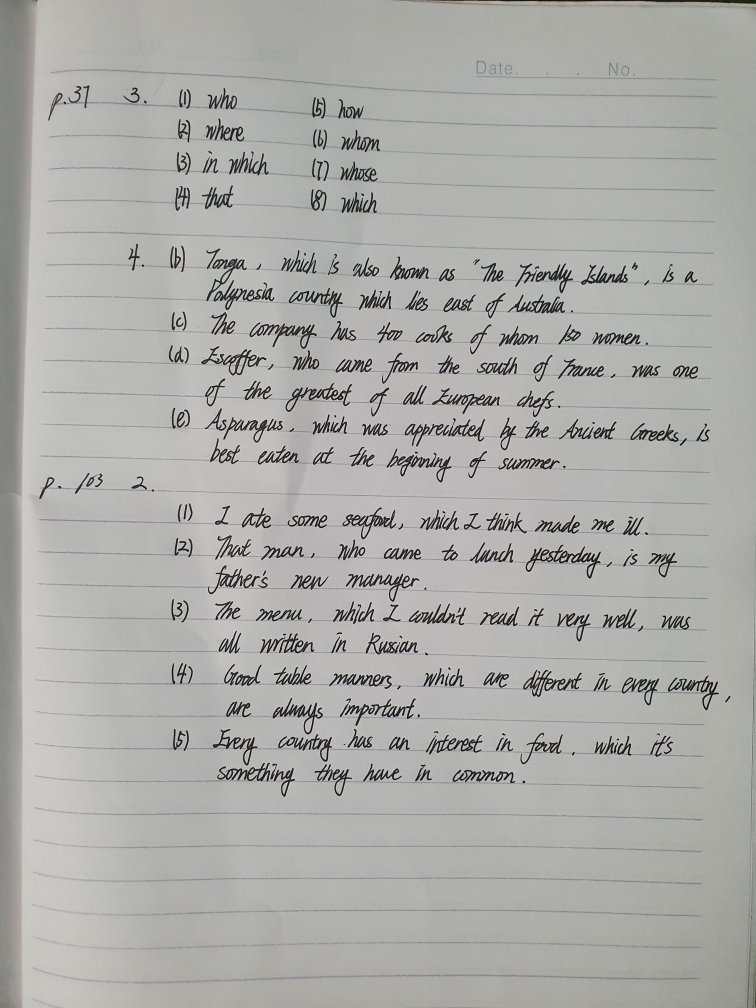 Date. . . No.
p.37 3. (1) who (5) how
(2) where (6) whom
(3) in which (7) whose
(4) that (8) which
4. (b) Tonga, which is also known as "The Friendly Islands", is a
Polynesia country which lies east of Australia.
(c) The company has 400 cooks of whom 150 women.
(d) Escoffer, who came from the south of France, was one
of the greatest of all European chefs.
(e) Asparagus, which was appreciated by the Ancient Greeks, is
best eaten at the beginning of summer.
p. 103 2.
(1) I ate some seafood, which I think made me ill.
(2) That man, who came to lunch yesterday, is my
father's new manager.
(3) The menu, which I couldn't read it very well, was
all written in Russian.
(4) Good table manners, which are different in every country,
are always important.
(5) Every country has an interest in food, which it's
something they have in common.